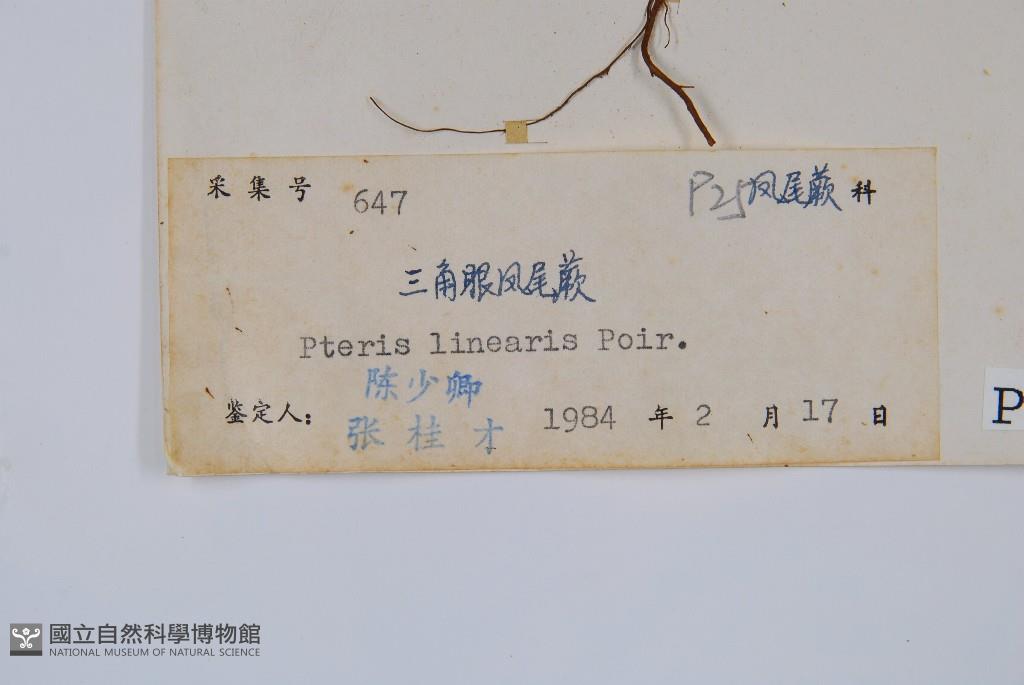 采集号 647 P25凤尾蕨科
三角眼凤尾蕨
Pteris linearis Poir.
陈少卿
鉴定人: 张桂才 1984 年 2 月 17 日
P
國立自然科學博物館
NATIONAL MUSEUM OF NATURAL SCIENCE